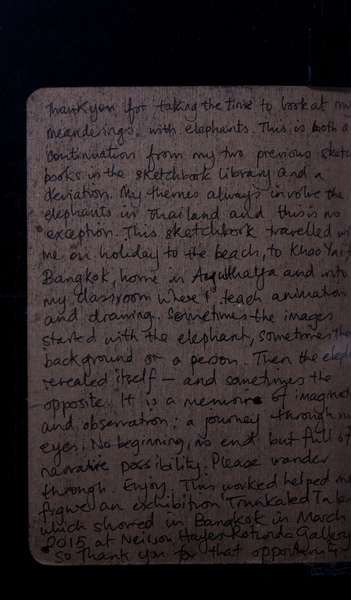 Thankyou for taking the time to look at my
meanderings with elephants. This is both a
continuation from my two previous sketch
books in the sketchbook library and a
deviation. My themes always involve the
elephants in Thailand and this is no
exception. This sketchbook travelled wi
me on holiday to the beach, to Khao Yai,
Bangkok, home in Ayutthaya and into
my classroom where I teach animation
and drawing. Sometimes the images
started with the elephant, sometimes the
background or a person. Then the elep
revealed itself — and sometimes the
opposite. It is a memoire of imaginat
and observation: a journey through m
eyes. No beginning, no end but full of
narrative possibility. Please wander
through. Enjoy. This worked helped me
figure an exhibition 'Trunkated
which showed in Bangkok in March
2015 at Neilson Hays Rotunda Gallery
So Thank you for that opportunity